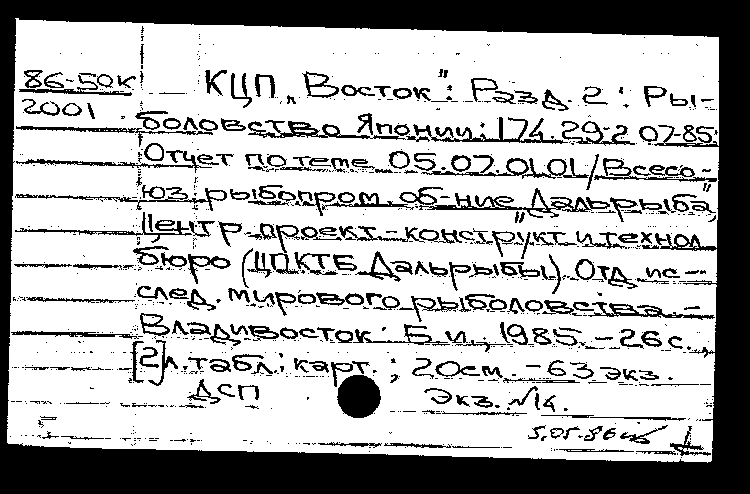 86-50к КЦП „Восток": Разд. 2: Ры-
2001 боловство Японии: 174.29-2 07-85:
Отчет по теме 05.07.01.01/Всесо-
юз. рыбопром. об-ние „Дальрыба",
Центр. проект.-конструкт и технол
бюро (ЦПКТБ „Дальрыбы). Отд. ис-
след. мирового рыболовства. -
Владивосток: Б.и., 1985. - 26 с.,
[2] л. табл.: карт.; 20см. - 63 экз.
ДСП Экз. №14.
5.05.86